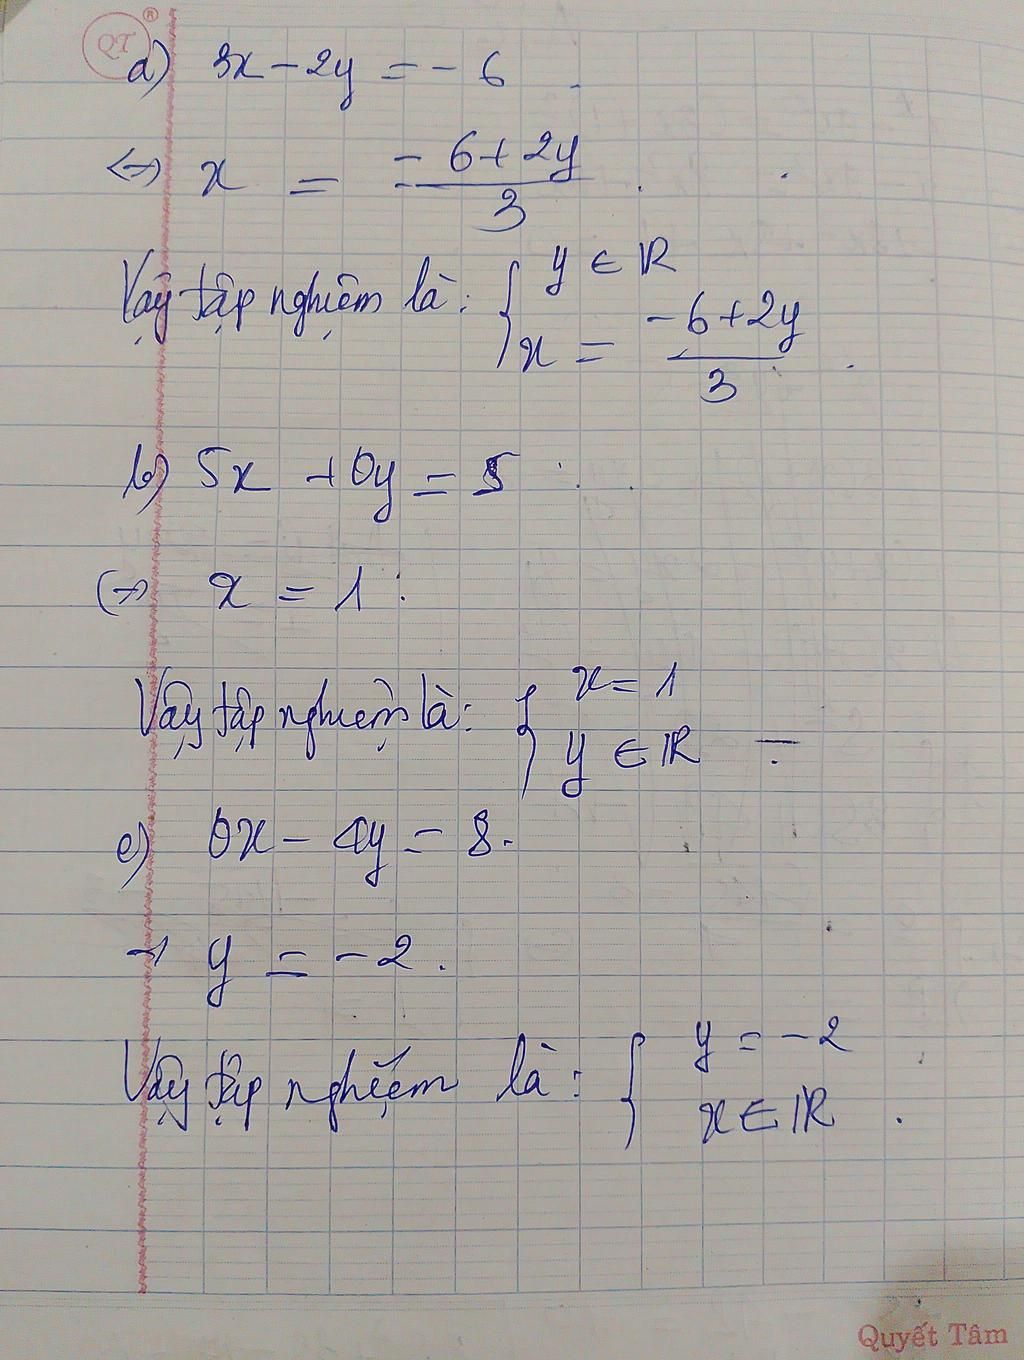 QT ®
a) 3x - 2y = - 6 .
<=> x = (- 6 + 2y) / 3 .
Vậy tập nghiệm là: { y ∈ ℝ
x = (- 6 + 2y) / 3 .
b) 5x + 0y = 5
<=> x = 1 :
Vậy tập nghiệm là: { x = 1
y ∈ ℝ
c) 0x - 4y = 8.
→ y = - 2 .
Vậy tập nghiệm là: { y = - 2
x ∈ ℝ .
Quyết Tâm